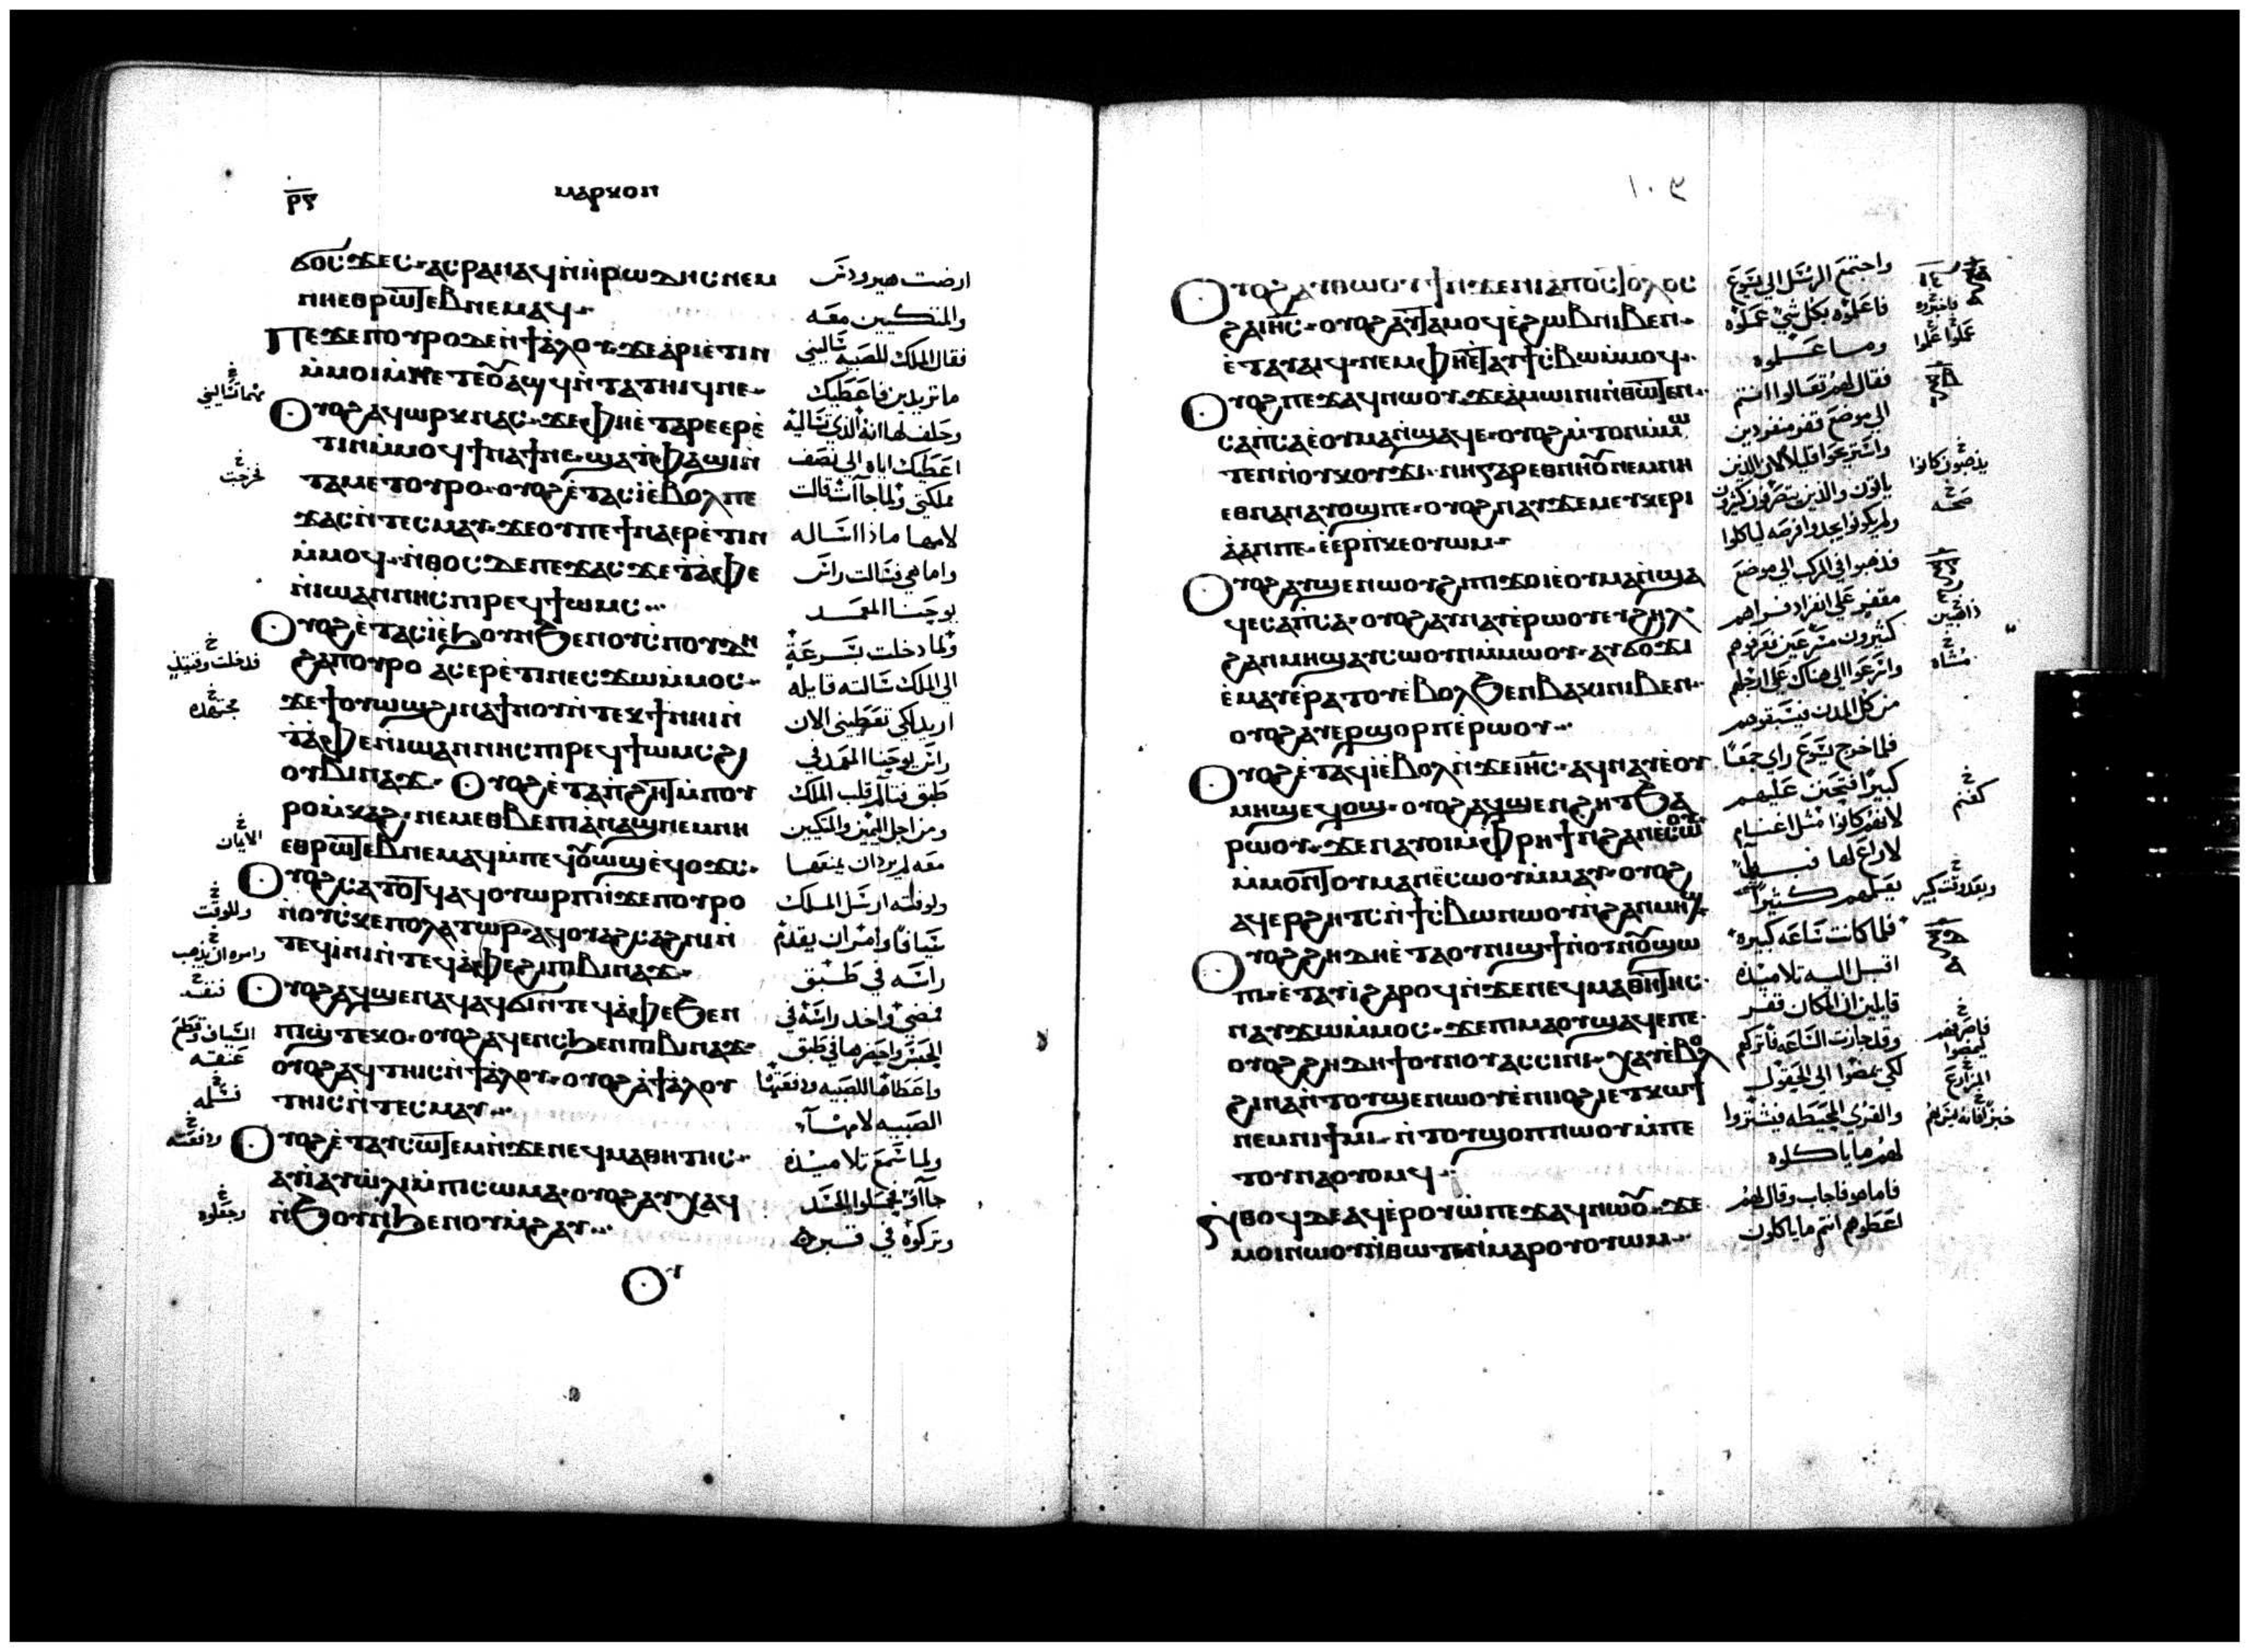 ⲙⲁⲣⲕⲟⲛ
ϭⲟⲥϫⲉⲥ ⲁⲥⲣⲁⲛⲁϥ ⲛ̀ⲏⲣⲱⲇⲏⲥ ⲛⲉⲙ
ⲛⲏⲉⲑⲣⲱⲧⲉⲃ ⲛⲉⲙⲁϥ
ⲡⲉϫⲉ ⲡⲟⲩⲣⲟ ϫⲉ ⲛ̀ϯⲁⲗⲟⲩ ϫⲉ ⲁⲣⲓⲉ̀ⲧⲓⲛ
ⲙ̀ⲙⲟⲓ ⲙ̀ⲡⲉⲧⲉⲟⲩⲁϣϥ ⲛ̀ⲧⲁⲧⲏⲓϥ ⲛⲉ
ⲟⲩⲟϩ ⲁϥⲱⲣⲕ ⲛⲁⲥ ϫⲉ ⲫⲏⲉ̀ⲧⲁⲣⲉⲉⲣⲉ̀
ⲧⲓⲛ ⲙ̀ⲙⲟϥ ϯⲛⲁϯ ⲛⲉ ϣⲁⲧⲫⲁϣⲓ ⲛ̀
ⲧⲁⲙⲉⲧⲟⲩⲣⲟ ⲟⲩⲟϩ ⲉ̀ⲧⲁⲥⲓ̀ ⲉ̀ⲃⲟⲗ ⲡⲉ
ϫⲁⲥ ⲛ̀ⲧⲉⲥⲙⲁⲩ ϫⲉ ⲟⲩ ⲡⲉϯⲛⲁⲉⲣⲉ̀ⲧⲓⲛ
ⲙ̀ⲙⲟϥ ⲛ̀ⲑⲟⲥ ϫⲉ ⲡⲉϫⲁⲥ ϫⲉ ⲧⲁ̀ⲫⲉ
ⲛ̀ⲓⲱⲁⲛⲛⲏⲥ ⲡⲓⲣⲉϥϯⲱⲙⲥ
ⲟⲩⲟϩ ⲉ̀ⲧⲁⲥⲓ̀ ⲉ̀ϧⲟⲩⲛ ϧⲉⲛ ⲟⲩⲥⲡⲟⲩⲇⲏ
ϩⲁ ⲡⲟⲩⲣⲟ ⲁⲥⲉⲣⲉ̀ⲧⲓⲛ ⲉⲥϫⲱⲙ̀ⲙⲟⲥ
ϫⲉ ϯⲟⲩⲱϣ ϩⲓⲛⲁ ϯⲛⲟⲩ ⲛ̀ⲧⲉⲕϯ ⲛⲏⲓ ⲛ̀
ⲧⲁ̀ⲫⲉ ⲛ̀ⲓⲱⲁⲛⲛⲏⲥ ⲡⲓⲣⲉϥϯⲱⲙⲥ ϩⲓ
ⲟⲩⲃⲓⲛⲁϫ ⲟⲩⲟϩ ⲉ̀ⲧⲁⲡ̀ϩⲏⲧ ⲙ̀ⲡⲟⲩ
ⲣⲟ ⲙ̀ⲕⲁϩ ⲛⲉⲙ ⲉⲑⲃⲉ ⲡⲓⲁ̀ⲛⲁϣ ⲛⲉⲙ ⲛⲏ
ⲉⲑⲣⲱⲧⲉⲃ ⲛⲉⲙⲁϥ ⲙ̀ⲡⲉϥⲟⲩⲱϣ ⲉ̀ϥⲟϫⲥ
ⲟⲩⲟϩ ⲥⲁⲧⲟⲧϥ ⲁϥⲟⲩⲱⲣⲡ ⲛ̀ϫⲉ ⲡⲟⲩⲣⲟ
ⲛ̀ⲟⲩⲥⲕⲉⲡⲟⲗⲁⲧⲱⲣ ⲁϥⲟⲩⲁϩⲥⲁϩⲛⲓ ⲛ̀
ⲧⲉϥⲓ̀ⲛⲓ ⲛ̀ⲧⲉϥⲁ̀ⲫⲉ ϩⲓ ⲡⲓⲃⲓⲛⲁϫ
ⲟⲩⲟϩ ⲁϥϣⲉⲛⲁϥ ⲁϥϭⲓ ⲛ̀ⲧⲉϥⲁ̀ⲫⲉ ϧⲉⲛ
ⲡⲓϣ̀ⲧⲉⲕⲟ ⲟⲩⲟϩ ⲁϥⲉⲛⲥ ϧⲉⲛ ⲡⲓⲃⲓⲛⲁϫ
ⲟⲩⲟϩ ⲁϥⲧⲏⲓⲥ ⲛ̀ϯⲁ̀ⲗⲟⲩ ⲟⲩⲟϩ ⲁ̀ϯⲁ̀ⲗⲟⲩ
ⲧⲏⲓⲥ ⲛ̀ⲧⲉⲥⲙⲁⲩ
ⲟⲩⲟϩ ⲉ̀ⲧⲁⲩⲥⲱⲧⲉⲙ ⲛ̀ϫⲉ ⲛⲉϥⲙⲁⲑⲏⲧⲏⲥ
ⲁⲩⲓ̀ ⲁⲩⲱ̀ⲗⲓ ⲙ̀ⲡⲓⲥⲱⲙⲁ ⲟⲩⲟϩ ⲁⲩⲭⲁϥ
ⲛ̀ϧⲟⲩⲛ ϧⲉⲛ ⲟⲩⲙ̀ϩⲁⲩ
ⲟⲩ
ارضت هيرودس
والمتكيين معه
فقال الملك للصبيه ساليني
ما تريدين فاعطيك
وحلف لها انه الذي تساليه
اعطيك اياه الي نصف
مملكتي ولما جآات قالت
لامها ماذا اساله
واما هي فقالت راس
يوحنا المعمد
ولما دخلت بسرعة
الي الملك سالته قايله
اريد لكي تعطيني الان
راس يوحنا المعمد في
طبق فتالم قلب الملك
ومن اجل اليمين والمتكيين
معه لم يرد ان يمنعها
ولوقته ارسل الملك
سيافًا وامر ان يقدم
راسه في طبق
فمضي واخد راسه في
الحبس واحضرها في طبق
واعطاها للصبيه
الصبيه لامها
ولما سمع تلاميذه
جآاو فحملوا الجسد
وتركوه في قبره
١٠٤
ⲟⲩⲟϩ ⲁⲩⲑⲱⲟⲩϯ ⲛ̀ϫⲉ ⲛⲓⲁⲡⲟⲥⲧⲟⲗⲟⲥ
ϩⲁ ⲓⲏ̅ⲥ̅ ⲟⲩⲟϩ ⲁⲩⲧⲁⲙⲟϥ ⲉ̀ϩⲱⲃ ⲛⲓⲃⲉⲛ
ⲉ̀ⲧⲁⲩⲁⲓϥ ⲛⲉⲙ ⲫⲏⲉ̀ⲧⲁⲩϯⲥ̀ⲃⲱ ⲙ̀ⲙⲟϥ
ⲟⲩⲟϩ ⲡⲉϫⲁϥ ⲛⲱⲟⲩ ϫⲉ ⲁ̀ⲙⲱⲓⲛⲓ ⲛ̀ⲑⲱⲧⲉⲛ
ⲥⲁⲡ̀ⲥⲁ ⲉ̀ⲟⲩⲙⲁⲛ̀ϣⲁϥⲉ ⲟⲩⲟϩ ⲙ̀ⲧⲟⲛ ⲙ̀ⲙⲱ
ⲧⲉⲛ ⲛ̀ⲟⲩⲕⲟⲩϫⲓ ⲛⲏ ⲅⲁⲣ ⲉⲑⲛⲏⲟⲩ ⲛⲉⲙ ⲛⲏ
ⲉⲑⲛⲁ ⲛⲁⲩⲟϣ ⲡⲉ ⲟⲩⲟϩ ⲛⲁⲩϫⲉⲙⲉⲩⲕⲉⲣⲓ
ⲁ̀ⲁⲛ ⲡⲉ ⲉ̀ⲉⲣⲡ̀ⲕⲉⲟⲩⲱⲙ
ⲟⲩⲟϩ ⲁⲩϣⲉⲛⲱⲟⲩ ϩⲓ ⲡⲓϫⲟⲓ ⲉ̀ⲟⲩⲙⲁⲛ̀ϣⲁ
ϥⲉ ⲥⲁⲡ̀ⲥⲁ ⲟⲩⲟϩ ⲁⲩⲛⲁⲩ ⲉ̀ⲣⲱⲟⲩ ⲉⲩϩⲏⲗ
ϩⲁⲛⲙⲏϣ ⲁⲩⲥⲱⲟⲩⲛ ⲙ̀ⲙⲱⲟⲩ ⲁⲩϭⲟϫⲓ
ⲉ̀ⲙⲁⲩ ⲉ̀ⲣⲁⲧⲟⲩ ⲉ̀ⲃⲟⲗ ϧⲉⲛ ⲃⲁⲕⲓ ⲛⲓⲃⲉⲛ
ⲟⲩⲟϩ ⲁⲩⲉⲣϣⲟⲣⲡ ⲉ̀ⲣⲱⲟⲩ
ⲟⲩⲟϩ ⲉ̀ⲧⲁϥⲓ̀ ⲉ̀ⲃⲟⲗ ⲛ̀ϫⲉ ⲓⲏ̅ⲥ̅ ⲁϥⲛⲁⲩ ⲉ̀ⲟⲩ
ⲙⲏϣ ⲉϥⲟϣ ⲟⲩⲟϩ ⲁϥϣⲉⲛϩⲏⲧ ϧⲁ
ⲣⲱⲟⲩ ϫⲉ ⲛⲁⲩⲟⲓ ⲙ̀ⲫⲣⲏϯ ⲛ̀ϩⲁⲛⲉ̀ⲥⲱⲟⲩ
ⲙ̀ⲙⲟⲛⲧⲟⲩ ⲙⲁⲛⲉ̀ⲥⲱⲟⲩ ⲙ̀ⲙⲁⲩ ⲟⲩⲟϩ
ⲁϥⲉⲣϩⲏⲧⲥ ⲛ̀ϯⲥ̀ⲃⲱ ⲛⲱⲟⲩ ⲛ̀ϩⲁⲛⲙⲏϣ
ⲟⲩⲟϩ ϩⲏⲇⲏ ⲉ̀ⲧⲁ ⲟⲩⲛⲓϣϯ ⲛ̀ⲟⲩⲛⲟⲩ ϣⲱ
ⲡⲓ ⲉ̀ⲧⲁⲩⲓ̀ ϩⲁⲣⲟϥ ⲛ̀ϫⲉ ⲛⲉϥⲙⲁⲑⲏⲧⲏⲥ
ⲛⲁⲩϫⲱⲙ̀ⲙⲟⲥ ϫⲉ ⲡⲓⲙⲁ ⲟⲩϣⲁϥⲉ ⲡⲉ
ⲟⲩⲟϩ ϩⲏⲇⲏ ϯⲟⲩⲛⲟⲩ ⲁⲥⲥⲓⲛⲓ ⲭⲁⲩ ⲉ̀ⲃⲟⲗ
ϩⲓⲛⲁ ⲛ̀ⲧⲟⲩϣⲉⲛⲱⲟⲩ ⲉ̀ⲛⲓⲟϩⲓ ⲉⲧⲕⲱϯ
ⲛⲉⲙ ⲛⲓϯⲙⲓ ⲛ̀ⲧⲟⲩϣⲟⲡ ⲛⲱⲟⲩ ⲙ̀ⲡⲉ
ⲧⲟⲩⲛⲁⲟⲩⲟⲙϥ
ⲛ̀ⲑⲟϥ ⲇⲉ ⲁϥⲉ̀ⲣⲟⲩⲱ̀ ⲡⲉϫⲁϥ ⲛⲱⲟⲩ ϫⲉ
ⲙⲟⲓ ⲛⲱⲟⲩ ⲛ̀ⲑⲱⲧⲉⲛ ⲙⲁⲣⲟⲩⲟⲩⲱⲙ
واجتمع الرسل الي يسوع
فاعلموه بكل شي عملوه
وما علموه
فقال لهم تعالوا انتم
الي موضع قفر منفردين
واستريحوا قليلا لان الذين
ياتون والذين ينصرفون كثيرون
ولم يكونوا يجدوا فرصه لياكلوا
فذهبوا في المركب الي موضع
مقفر علي انفراد فراهم
كثيرون مسرعين فعرفوهم
واسرعوا الي هناك علي ارجلهم
من كل المدن فسبقوهم
فلما خرج يسوع راي جمعًا
كبيرًا فتحنن عليهم
لانهم كانوا مثل اغنام
لا راع لها فبدا
يعلمهم كثيرًا
فلما كانت ساعه كبيره
اقبل اليه تلاميذه
قايلين ان المكان قفر
وقد جازت الساعه فاتركهم
لكي يمضوا الي الحقول
والقري المحيطه فيشتروا
لهم ما ياكلوه
فاما هو فاجاب وقال لهم
اعطوهم انتم ما ياكلون